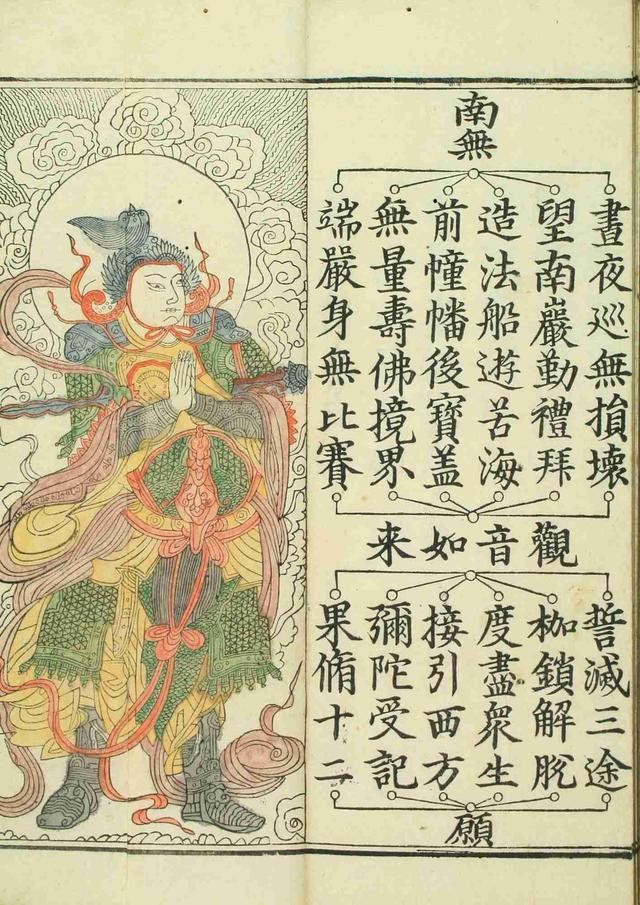 南無
晝夜廵無損壞
望南巖勤禮拜
造法船遊苦海
前幢幡後寶盖
無量壽佛境界
端嚴身無比賽
觀音如来
誓滅三途
枷鎖解脫
度盡衆生
接引西方
彌陀受記
果脩十二
願